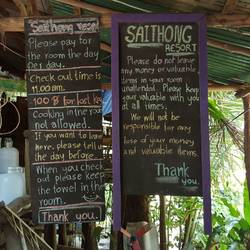 Saithong resort
Please pay for
the room day
per day.
Check out time is
11.00am.
100 B for lost key
Cooking in the room
not allowed.
If you want to leave
here, please tell us
the day before.
When you check
out please keep
the towel in the
room.
Thank you.
SAITHONG
RESORT
Please do not leave
any money or valuable
items in your room
unattended. Please keep
your valuable with you
at all times.
We will not be
responsible for any
lose of your money
and valuable items.
Thank
you.